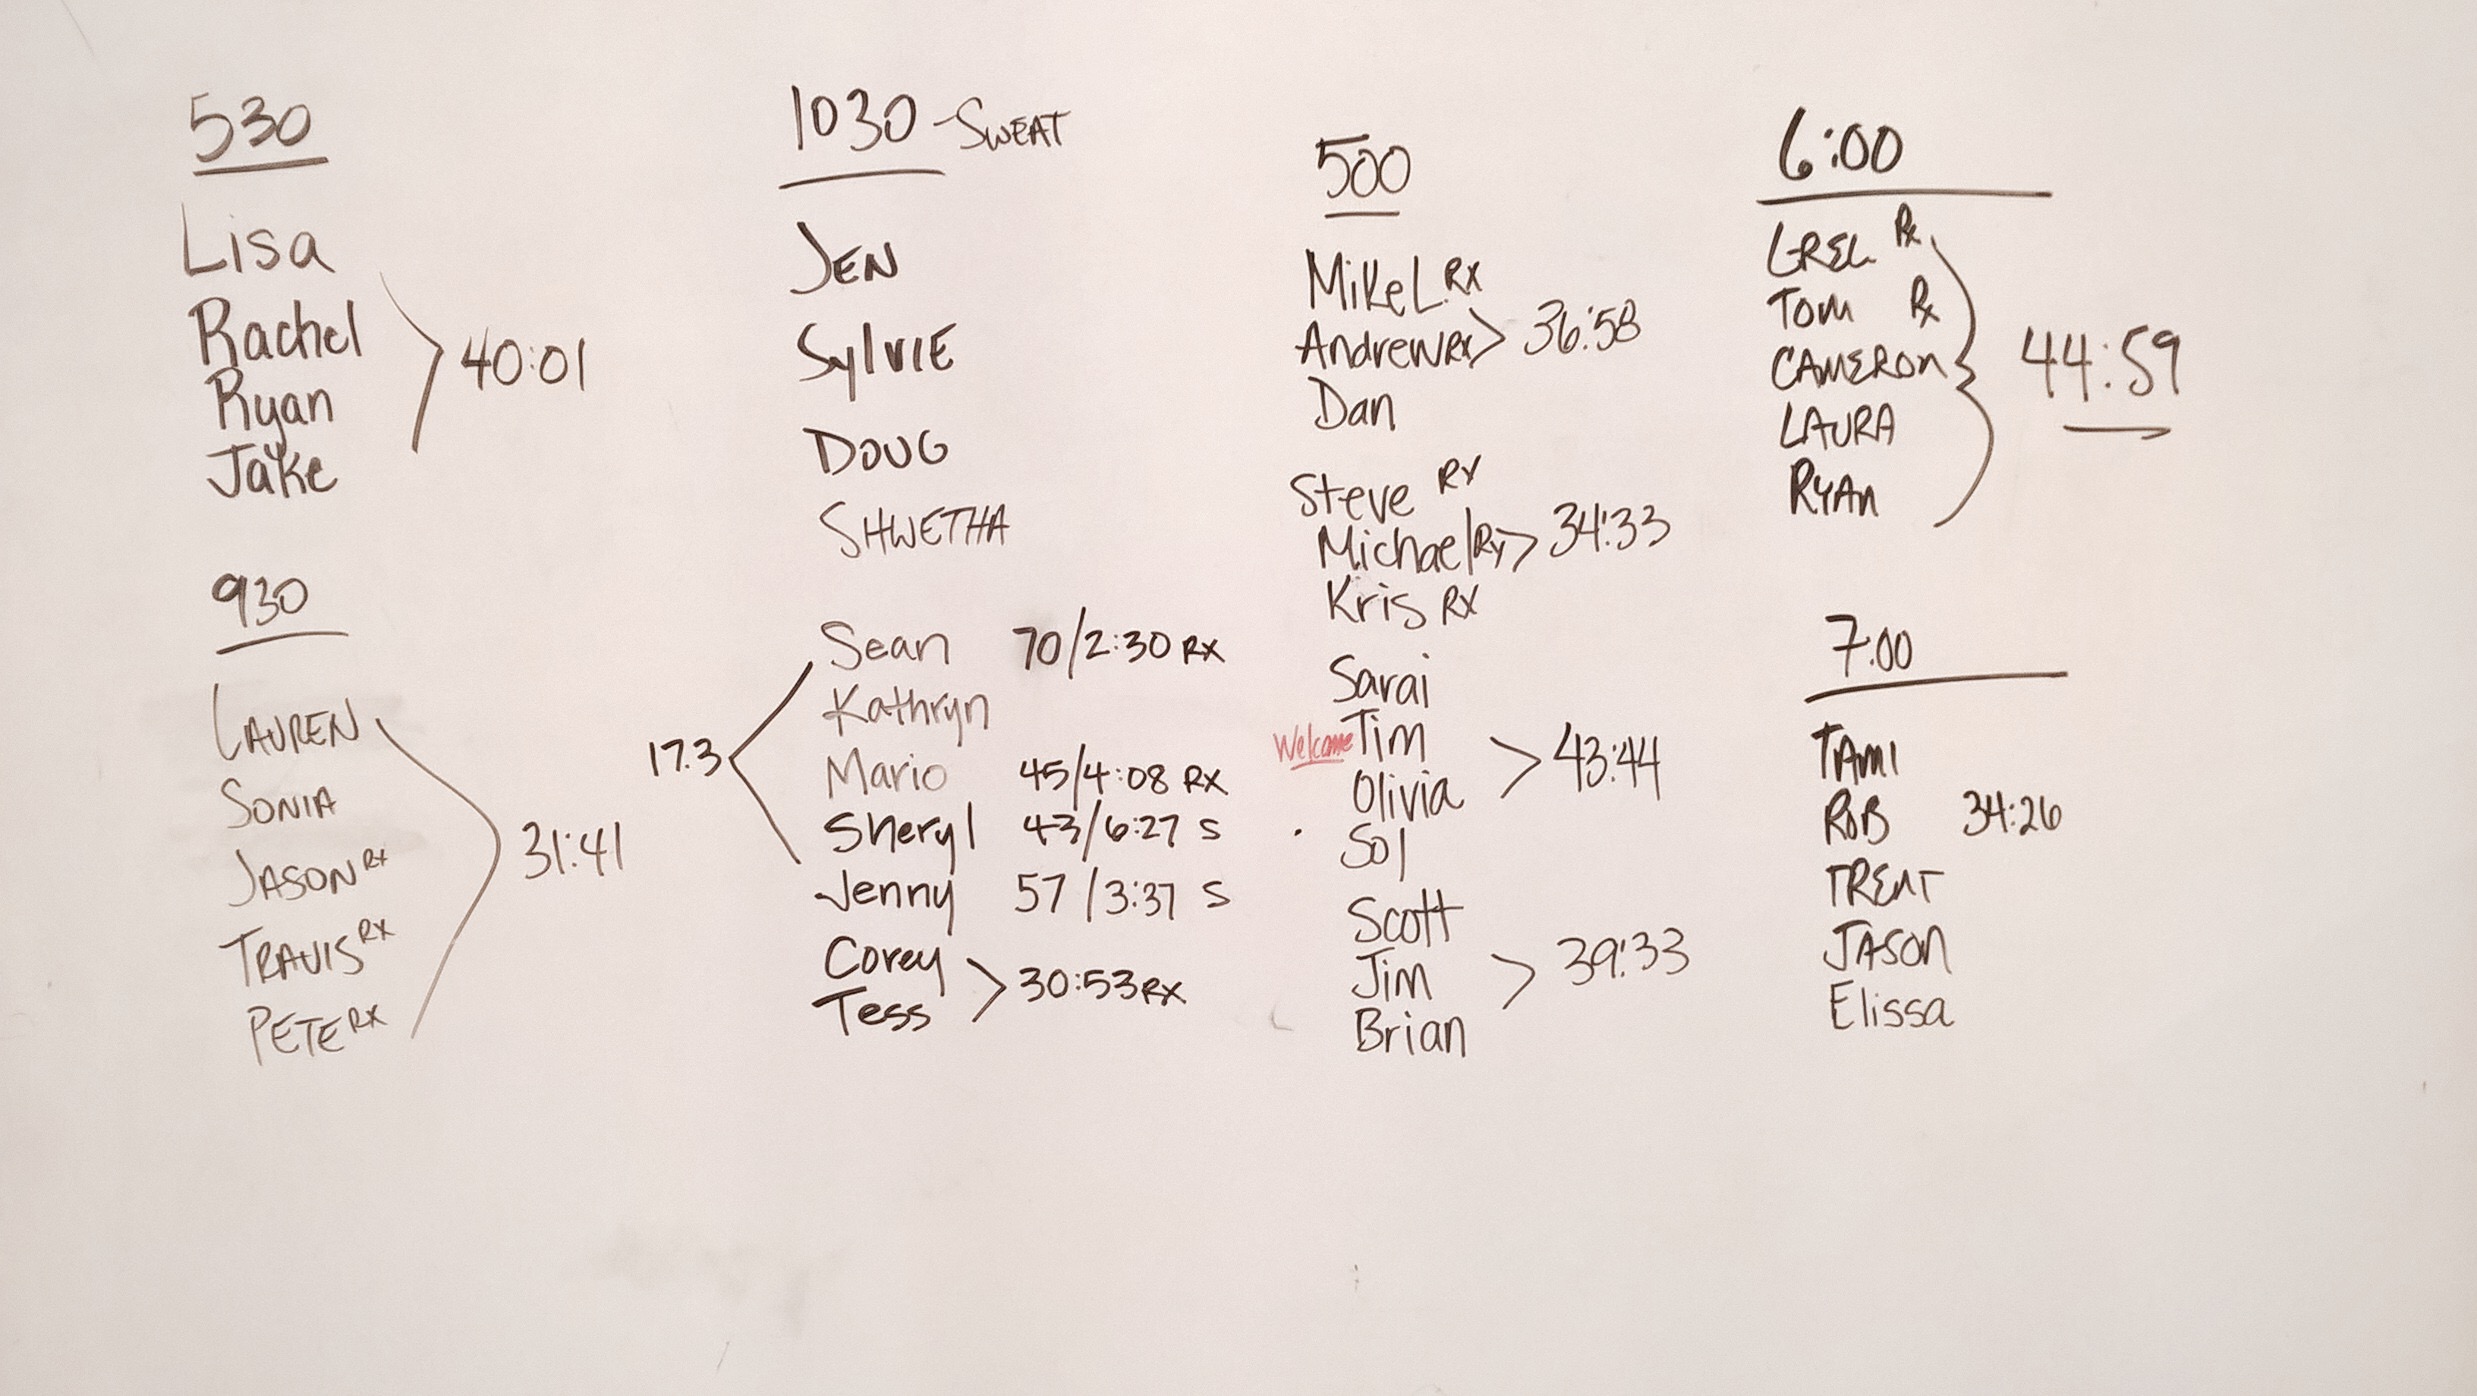 530
Lisa
Rachel
Ryan
Jake
40:01
930
LAUREN
SONIA
JASON RX
TRAVIS RX
PETE RX
31:41
1030 - SWEAT
JEN
SYLVIE
DOUG
SHWETHA
17.3
Sean 70/2:30 RX
Kathryn
Mario 45/4:08 RX
Sheryl 43/6:27 S
Jenny 57/3:37 S
Corey
Tess
30:53 RX
500
Mike L RX
Andrew RX
Dan
36:58
Steve RX
Michael RX
Kris RX
34:33
Sarai
Welcome Tim
Olivia
Sol
43:44
Scott
Jim
Brian
39:33
6:00
Rx
TOM Rx
CAMERON
LAURA
RYAN
44:59
7:00
TAMI
ROB 34:26
TRENT
JASON
Elissa